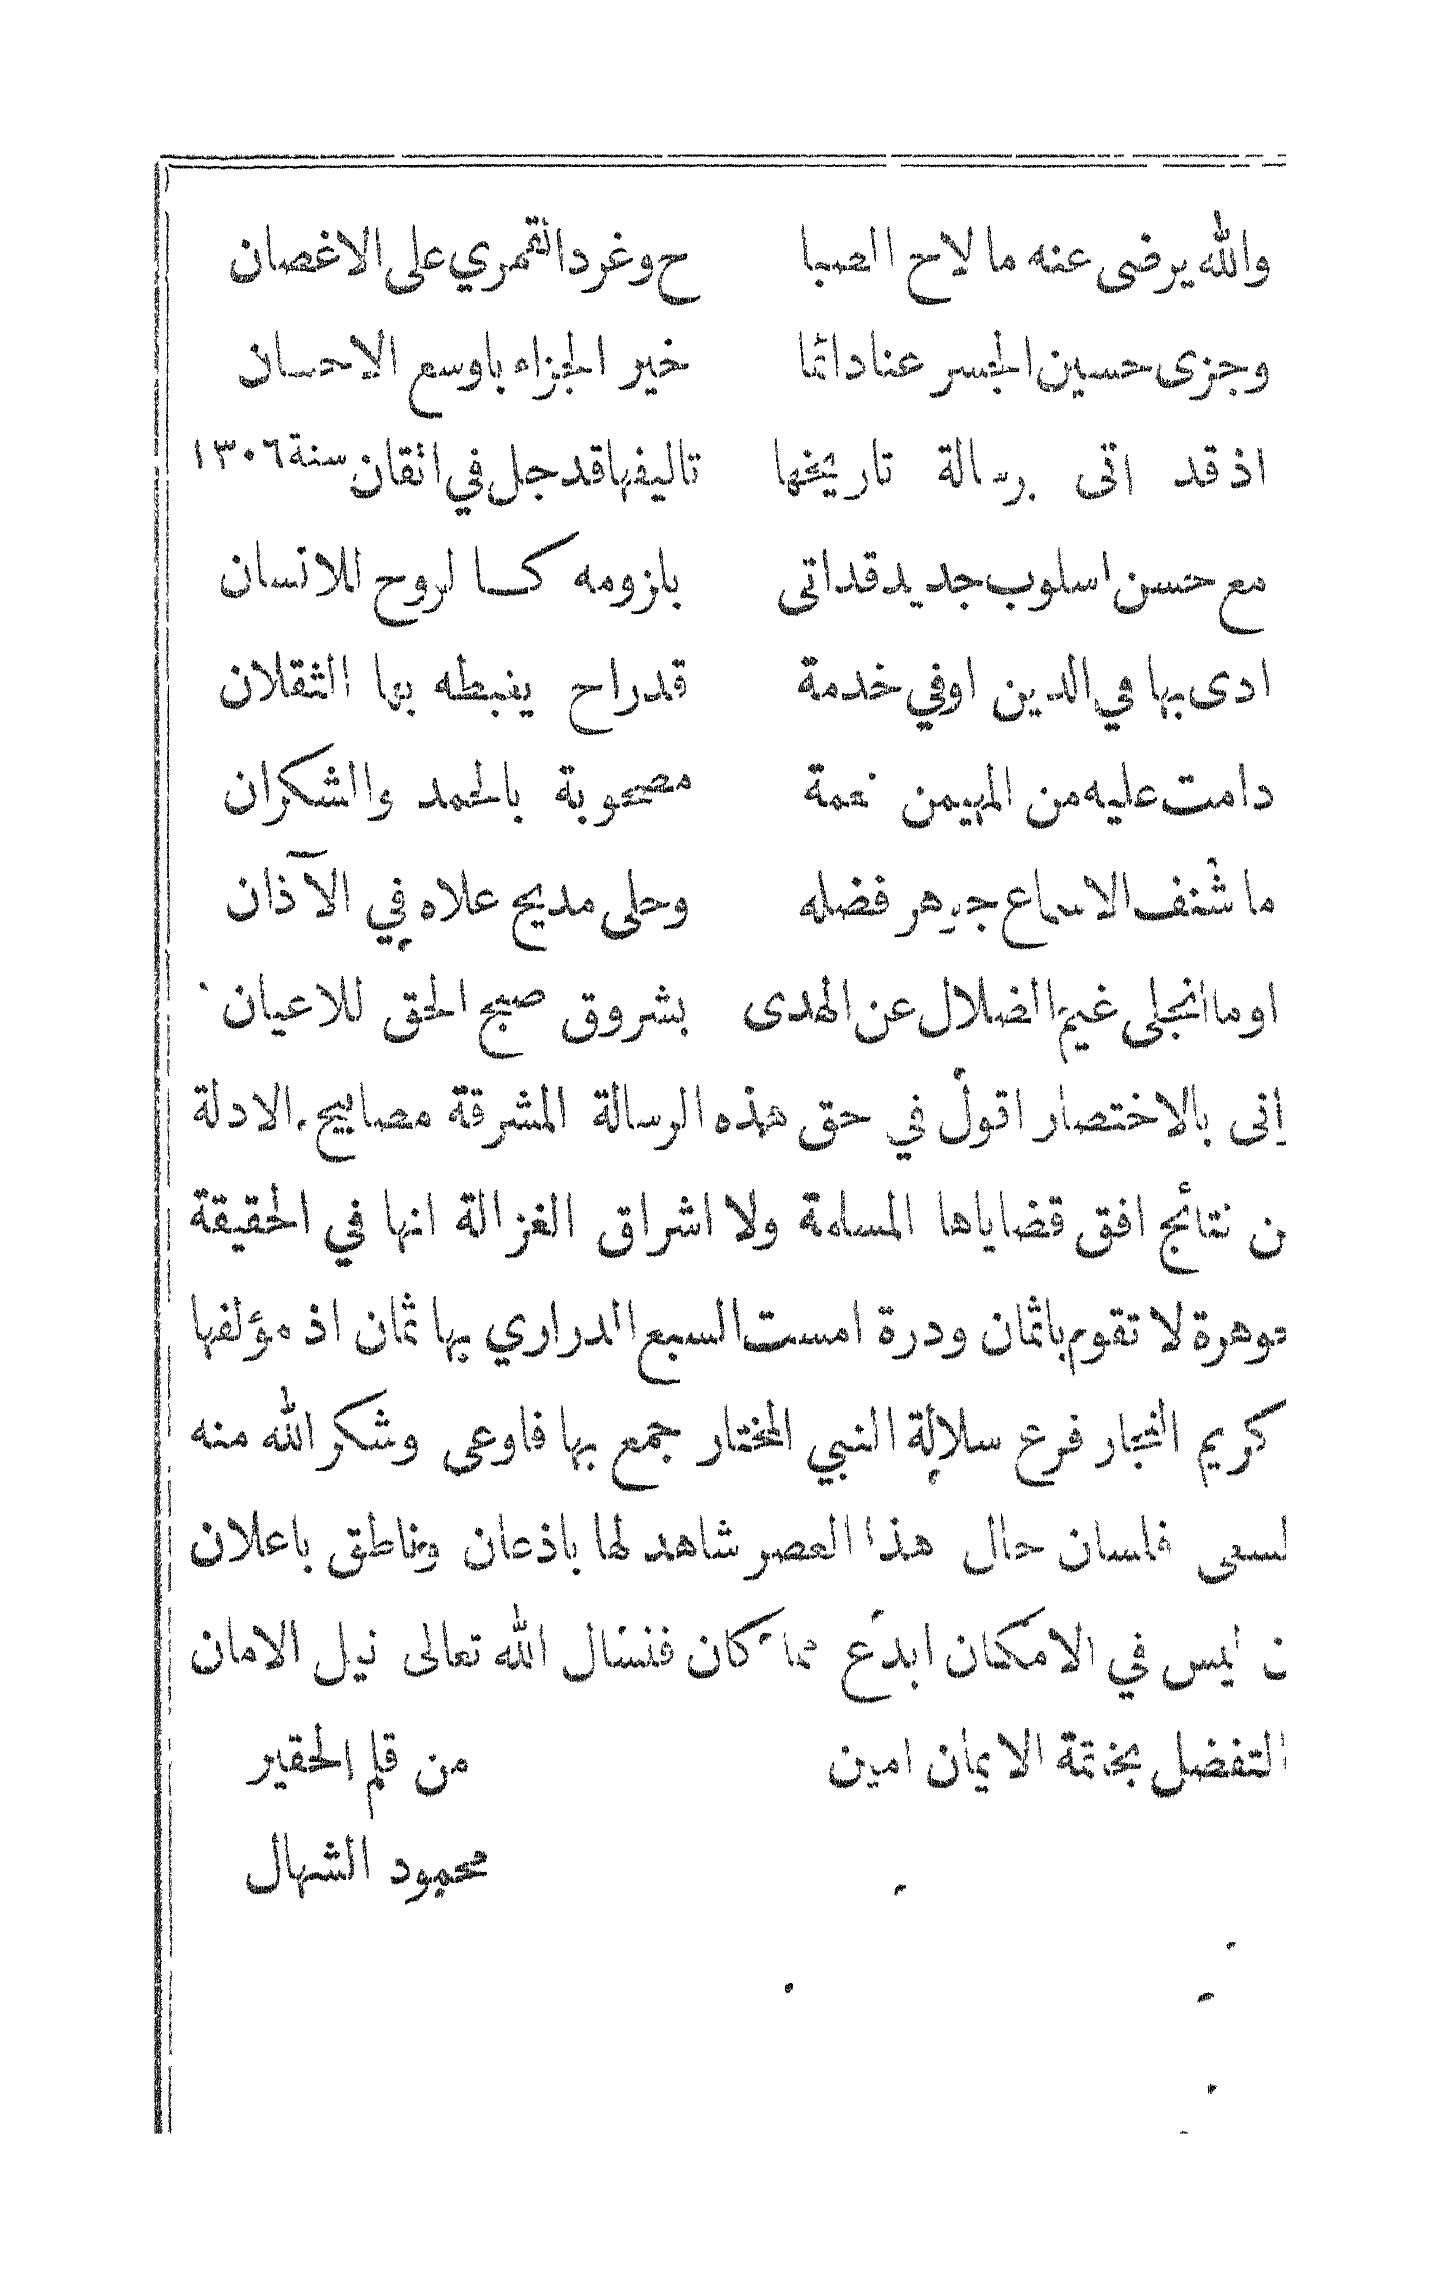 والله يرضى عنه ما لاح الصبا ح وغرد القمري على الاغصان
وجزى حسين الجسر عنا دائما خير الجزاء باوسع الاحسان
اذ قد اتى برسالة تاريخها تاليفها قد جل في اتقان سنة ١٣٠٦
مع حسن اسلوب جديد قد اتى بلزومه كالروح للانسان
ادى بها في الدين اوفي خدمة قد راح يغبطه بها الثقلان
دامت عليه من المهيمن نعمة مصحوبة بالحمد والشكران
ما شنف الاسماع جوهر فضله وحلى مديح علاه في الآذان
او ما انجلى غيم الضلال عن الهدى بشروق صبح الحق للاعيان
اني بالاختصار اقول في حق هذه الرسالة المشرقة مصابيح الادلة
ن نتائج افق قضاياها المسلمة ولا اشراق الغزالة انها في الحقيقة
جوهرة لا تقوم باثمان ودرة امست السبع الدراري بها ثمان اذ مؤلفها
كريم النجار فرع سلالة النبي المختار جمع بها فاوعى وشكر الله منه
لسعى فلسان حال هذا العصر شاهد لها باذعان وناطق باعلان
ن ليس في الامكان ابدع مما كان فنسال الله تعالى نيل الامان
التفضل بخاتمة الايمان امين من قلم الحقير
محمود الشهال